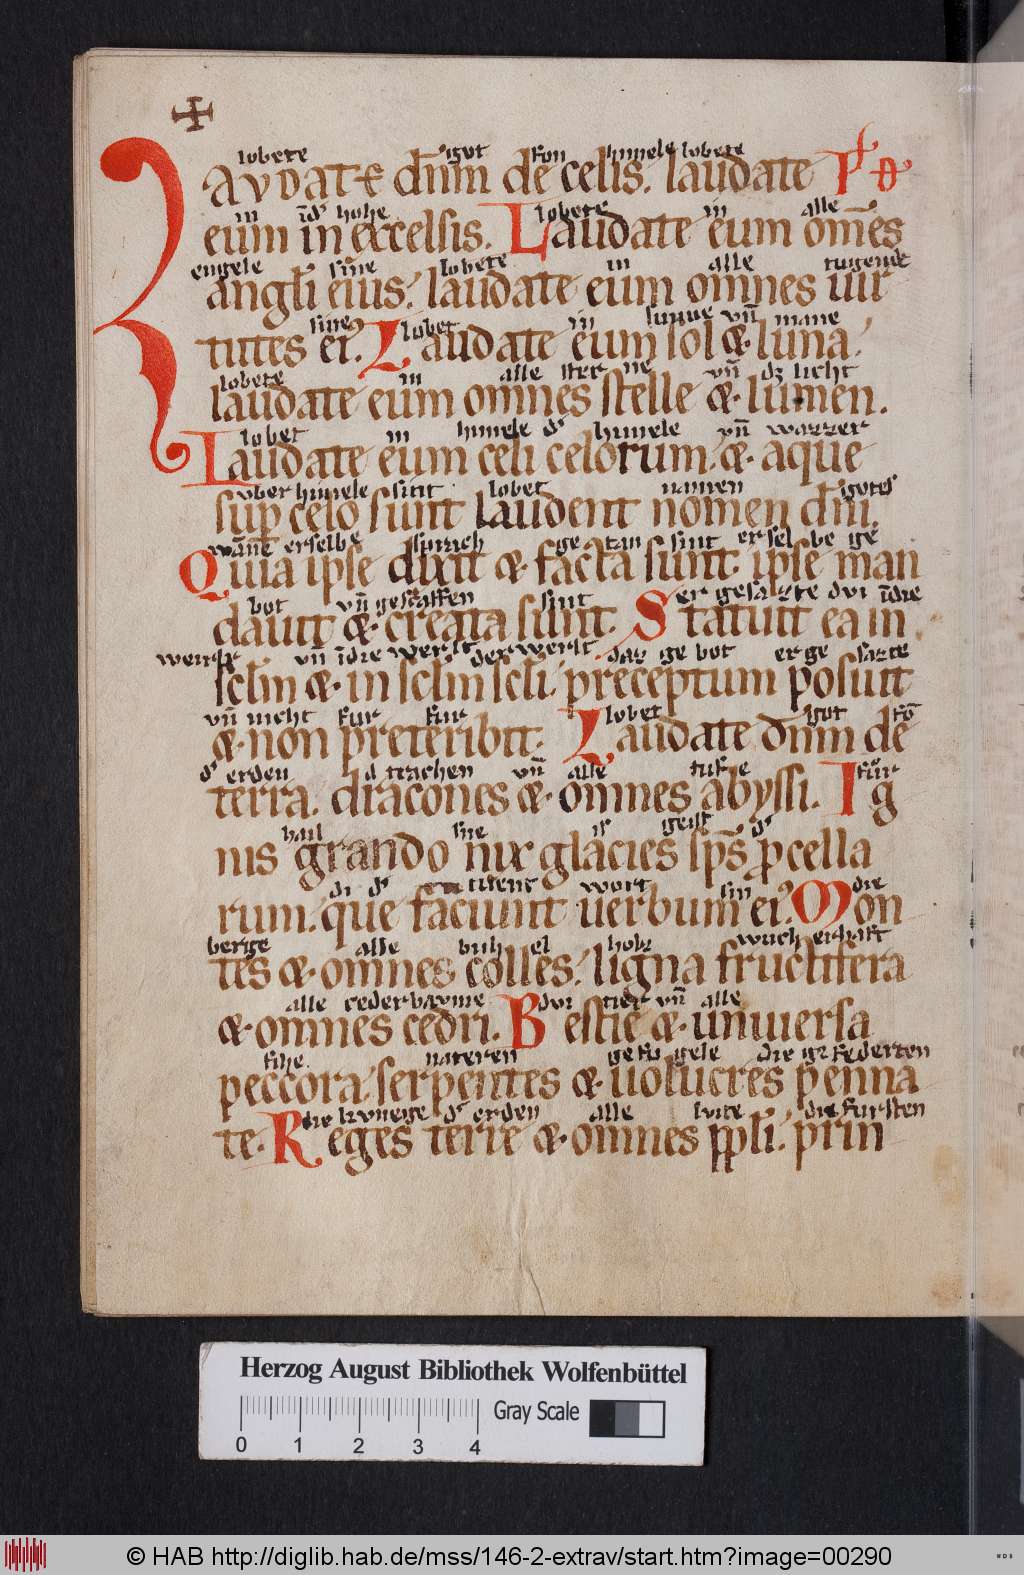 lobete got fon himele lobete
LAVDATE dn̄m de celis. laudate
in īd' hohe lobete in alle
eum in excelsis. Laudate eum om̄s
engele sine lobete in alle tugende
angl̄i eius. laudate eum omnes uir
sine lobet in sunne vn̄ mane
tutes ei'. Laudate eum sol & luna.
lobete in alle sterne vn̄ dz licht
laudate eum omnes stelle & lumen.
lobet in himele d' himele vn̄ wazzer
Laudate eum celi celorum. & aque
vber himele sint lobet namen gotes
sup celo sunt laudent nomen dn̄i.
wāne erselbe sprach getan sint erselbe ge
Quia ipse dixit & facta sunt. ipse man
bot vn̄ gescaffen sint er gesazte dvi īdie
dauit & creata sunt. Statuit ea in
werlt vn̄ īdie werlt der werlt daz gebot er gesazte
sclm & in sclm scli. preceptum posuit
vn̄ nicht fur fur lobet got fō
& non preteribit. Laudate dn̄m de
d' erden d trachen vn̄ alle tufe fůr
terra. dracones & omnes abyssi. Ig
hail sne is geist d'
nis grando nix glacies sps̄ pcella
di d' wort sin die
rum. que faciunt uerbum ei'. Mon
berge alle buhel holz wucherhaft
tes & omnes colles. ligna fructifera
alle cederbavme dvi tier vn̄ alle
& omnes cedri. Bestie & uniuersa
fihe nateren gefugele die gefederten
peccora. serpentes & uolucres penna
die kvnege d' erden alle lvte die fursten
te. Reges terre & omnes ppl̄i. prin
Herzog August Bibliothek Wolfenbüttel
Gray Scale
0 1 2 3 4
© HAB http://diglib.hab.de/mss/146-2-extrav/start.htm?image=00290